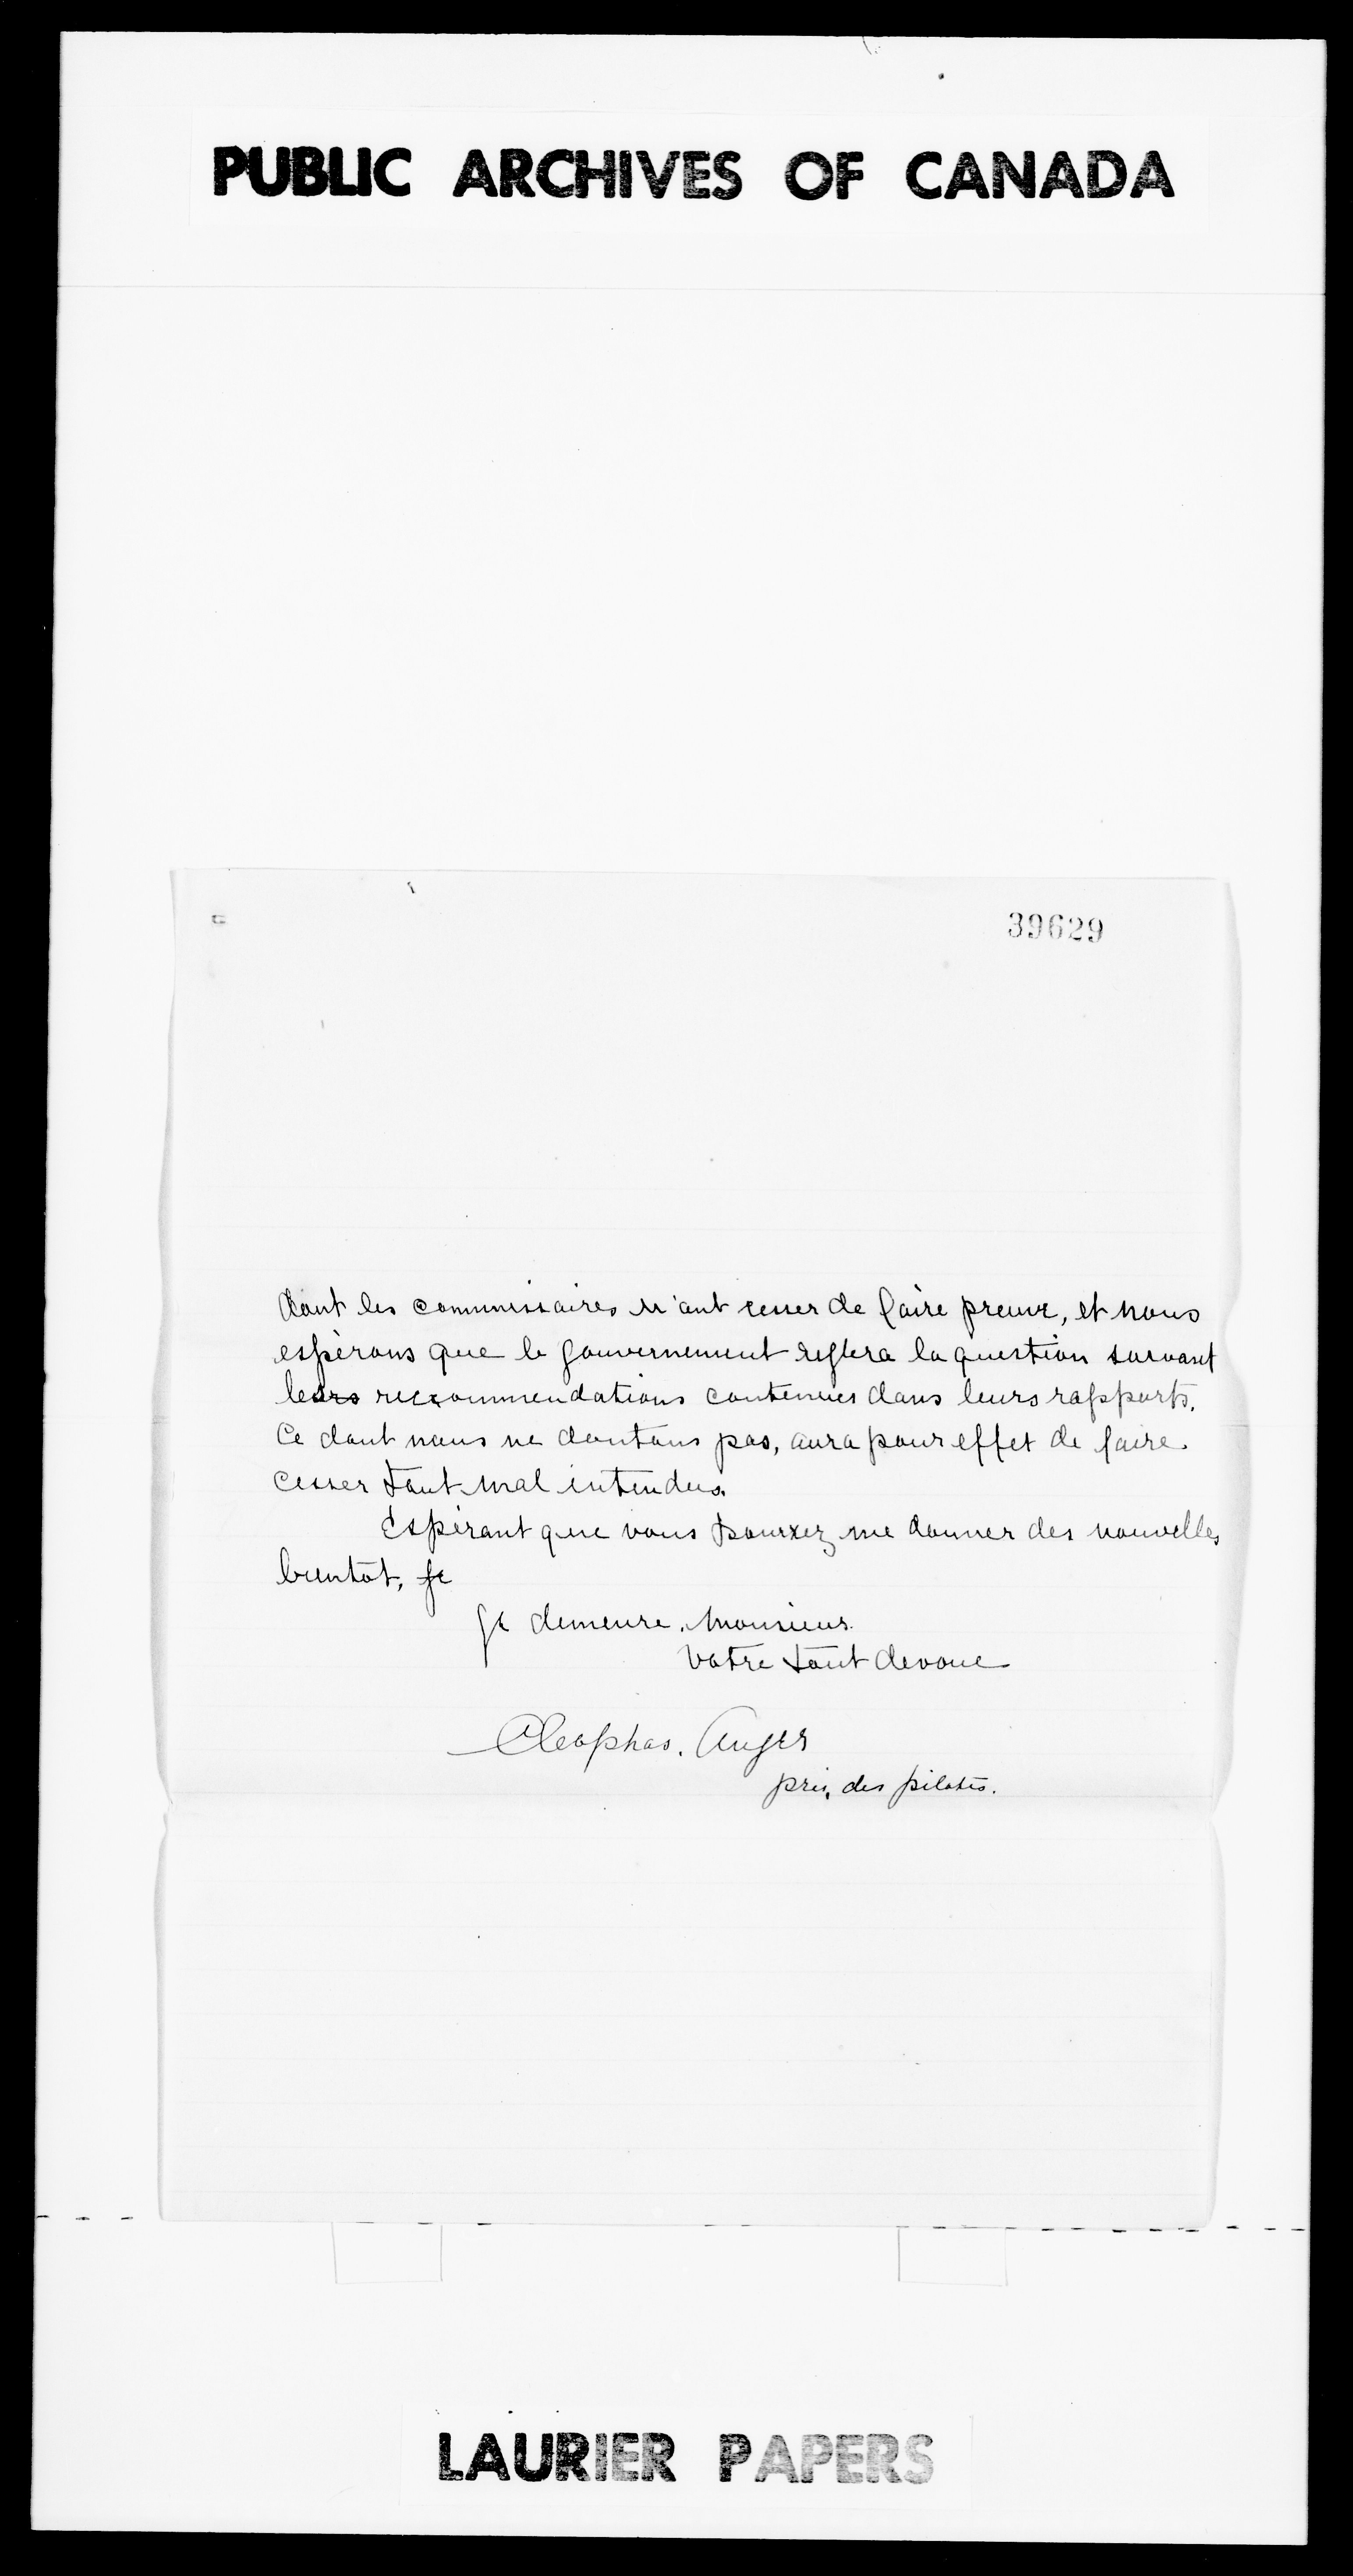 PUBLIC ARCHIVES OF CANADA
39629
dont les commissaires n'ont cesser de faire preuve, et nous
espèrons que le gouvernement reglera la question survant
leurs reccommendations contenues dans leurs rapports.
Ce dont nous ne doutons pas, aura pour effet de faire
cesser tout mal entendus.
Espérant que vous pourrez me donner des nouvelles
bientot, je
Je demeure, Monsieur
Votre tout devoue
Cleophas. Auger
prés. des pilotes.
LAURIER PAPERS